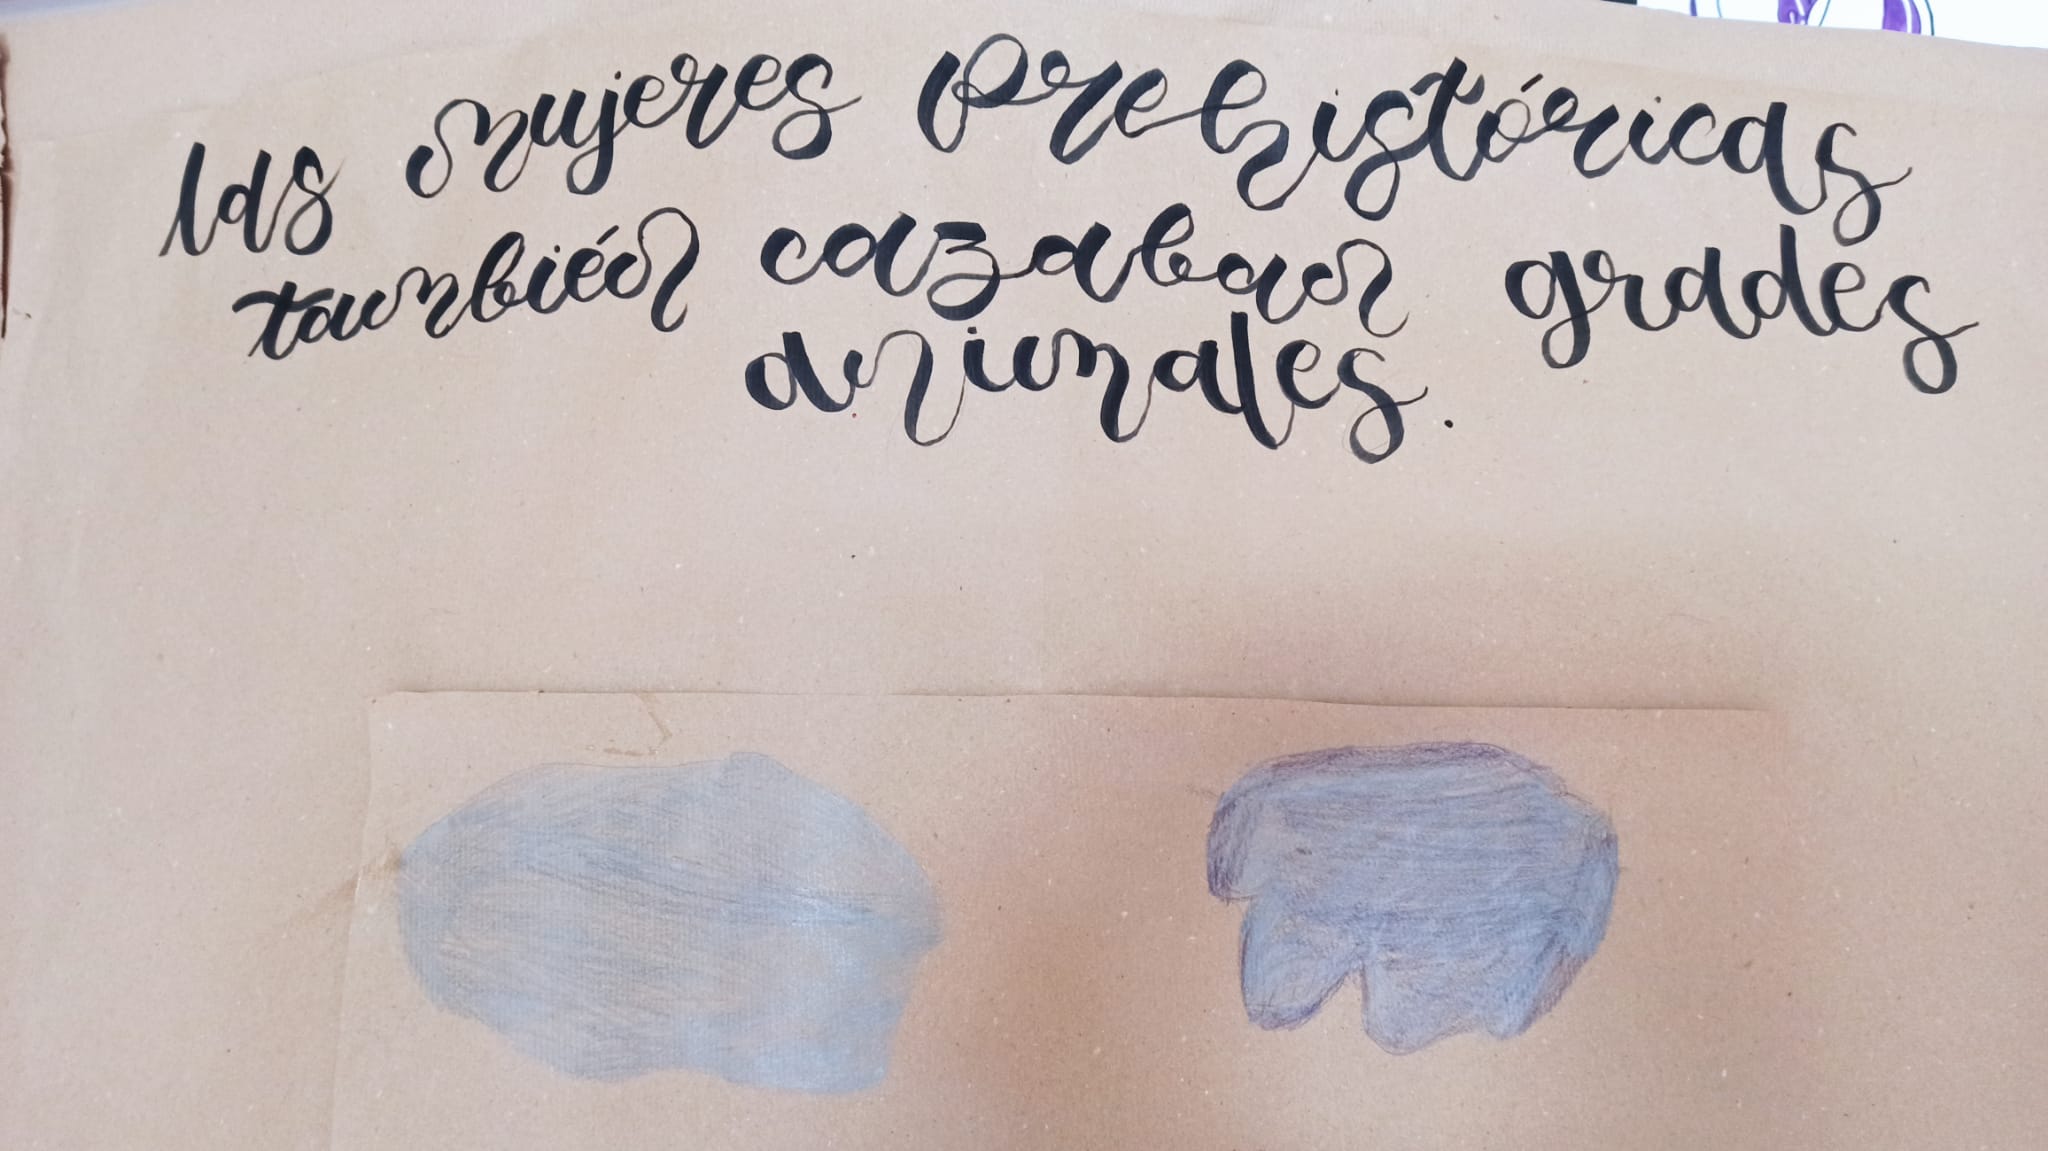 las mujeres prehistóricas
también cazaban grades
animales.